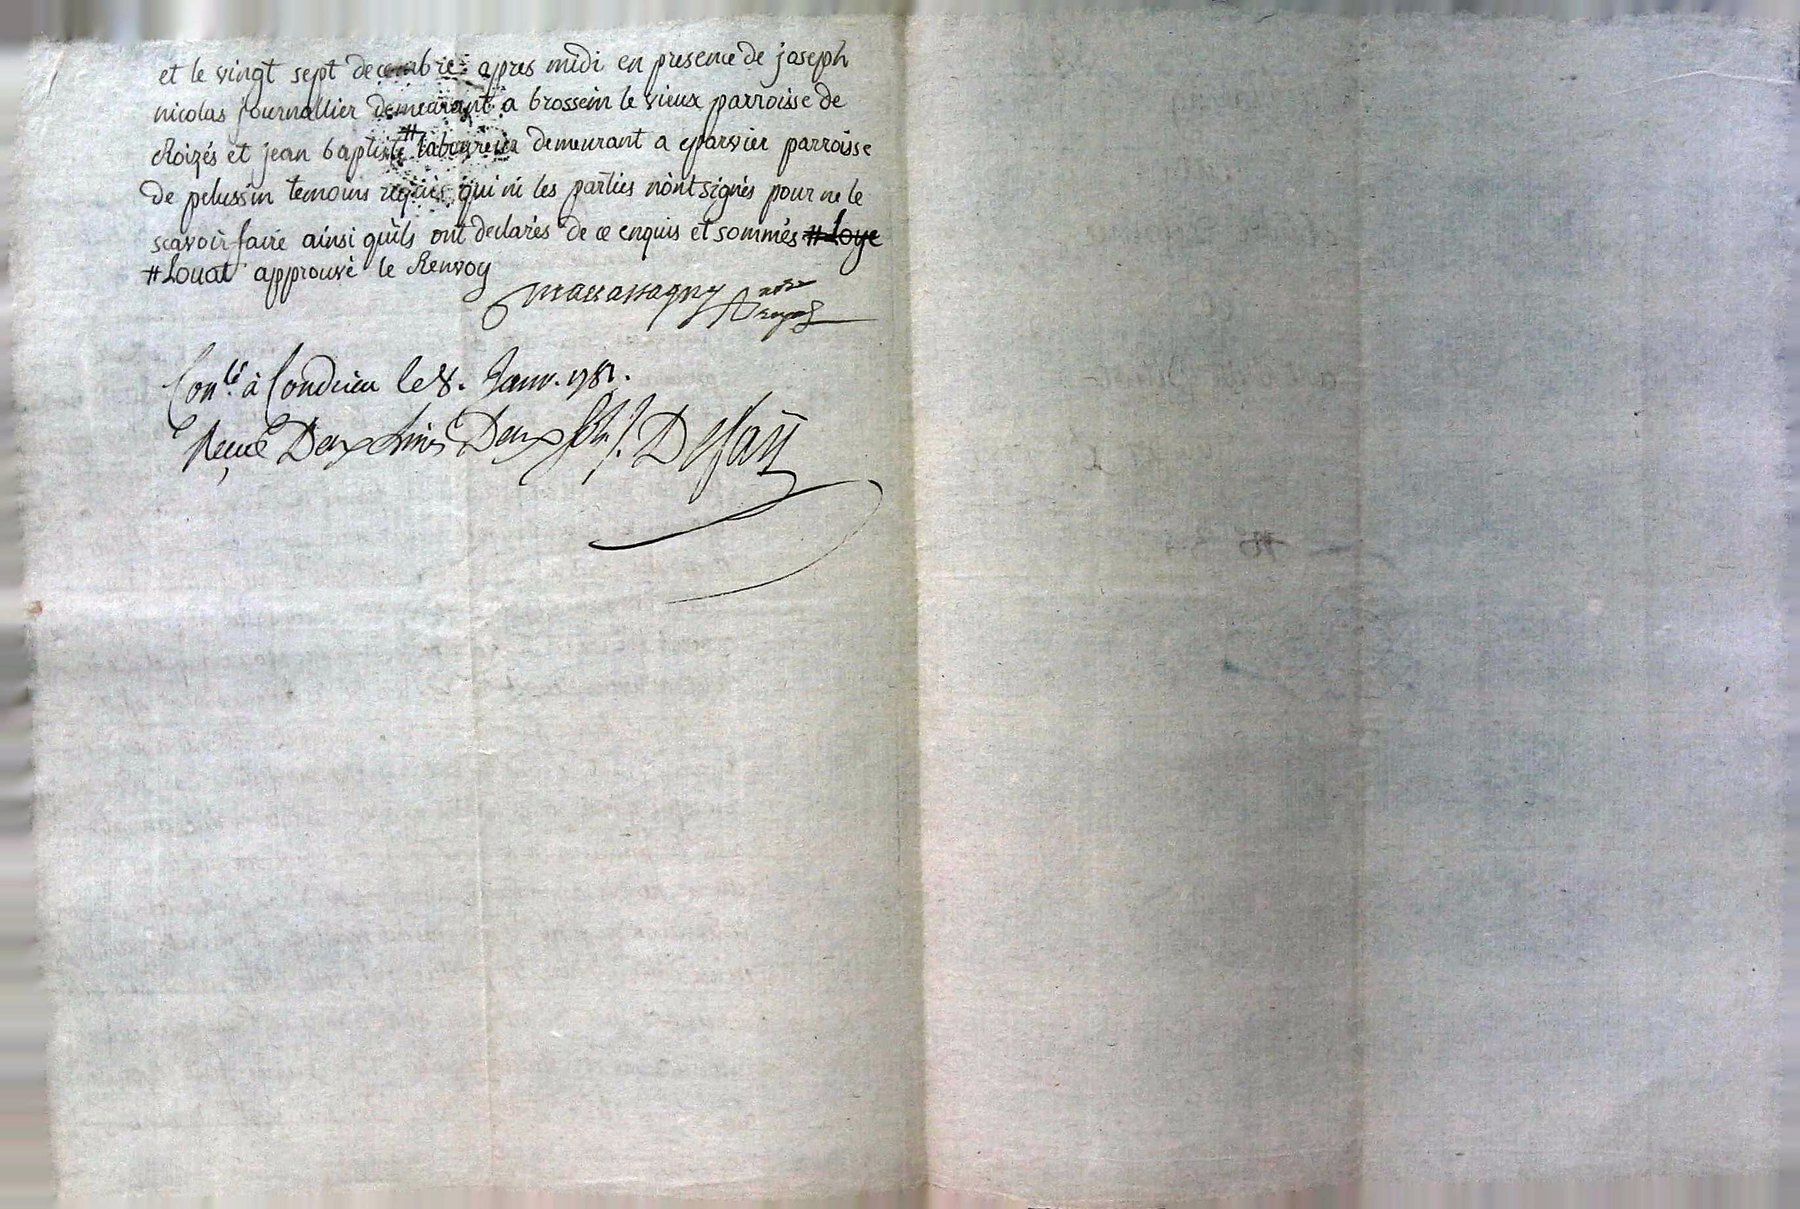 et le vingt sept decembre apres midi en presence de joseph
nicolas journallier demeurant a brossein le vieux parroisse de
Roizés et jean baptiste # laboureur demeurant a eparvier parroisse
de pelussin temoins requis qui ni les parties n'ont signés pour ne le
scavoir faire ainsi qu'ils ont declarés de ce enquis et sommés # Loye
# Louat approuvé le Renvoy
Con.lé à Condrieu le 8. Janv. 1781.
Reçu Deux livres Deux sols s. Defay